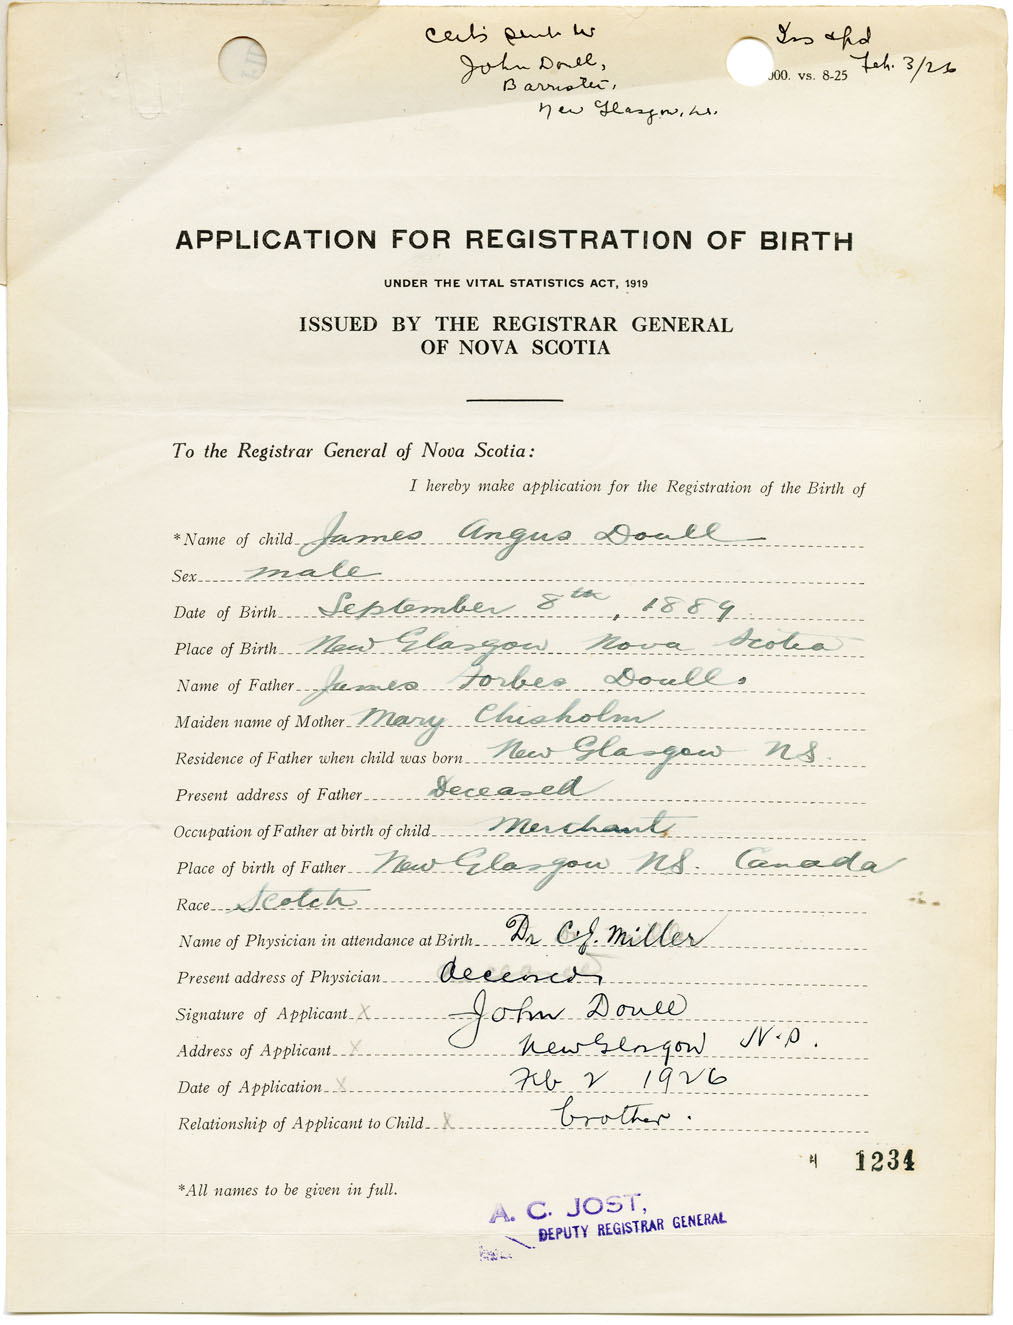 Certs sent to
John Doull,
Barrister,
New Glasgow, N.S.
Iss & pd
Feb. 3/26
000. vs. 8-25
APPLICATION FOR REGISTRATION OF BIRTH
UNDER THE VITAL STATISTICS ACT, 1919
ISSUED BY THE REGISTRAR GENERAL
OF NOVA SCOTIA
To the Registrar General of Nova Scotia:
I hereby make application for the Registration of the Birth of
*Name of child James Angus Doull
Sex male
Date of Birth September 8th, 1889
Place of Birth New Glasgow Nova Scotia
Name of Father James Forbes Doull.
Maiden name of Mother Mary Chisholm
Residence of Father when child was born New Glasgow NS.
Present address of Father Deceased
Occupation of Father at birth of child Merchant
Place of birth of Father New Glasgow NS. Canada
Race Scotch
Name of Physician in attendance at Birth Dr C.J. Miller
Present address of Physician deceased
Signature of Applicant X John Doull
Address of Applicant X New Glasgow N.S.
Date of Application X Feb 2 1926
Relationship of Applicant to Child X brother.
1234
*All names to be given in full.
A. C. JOST,
DEPUTY REGISTRAR GENERAL